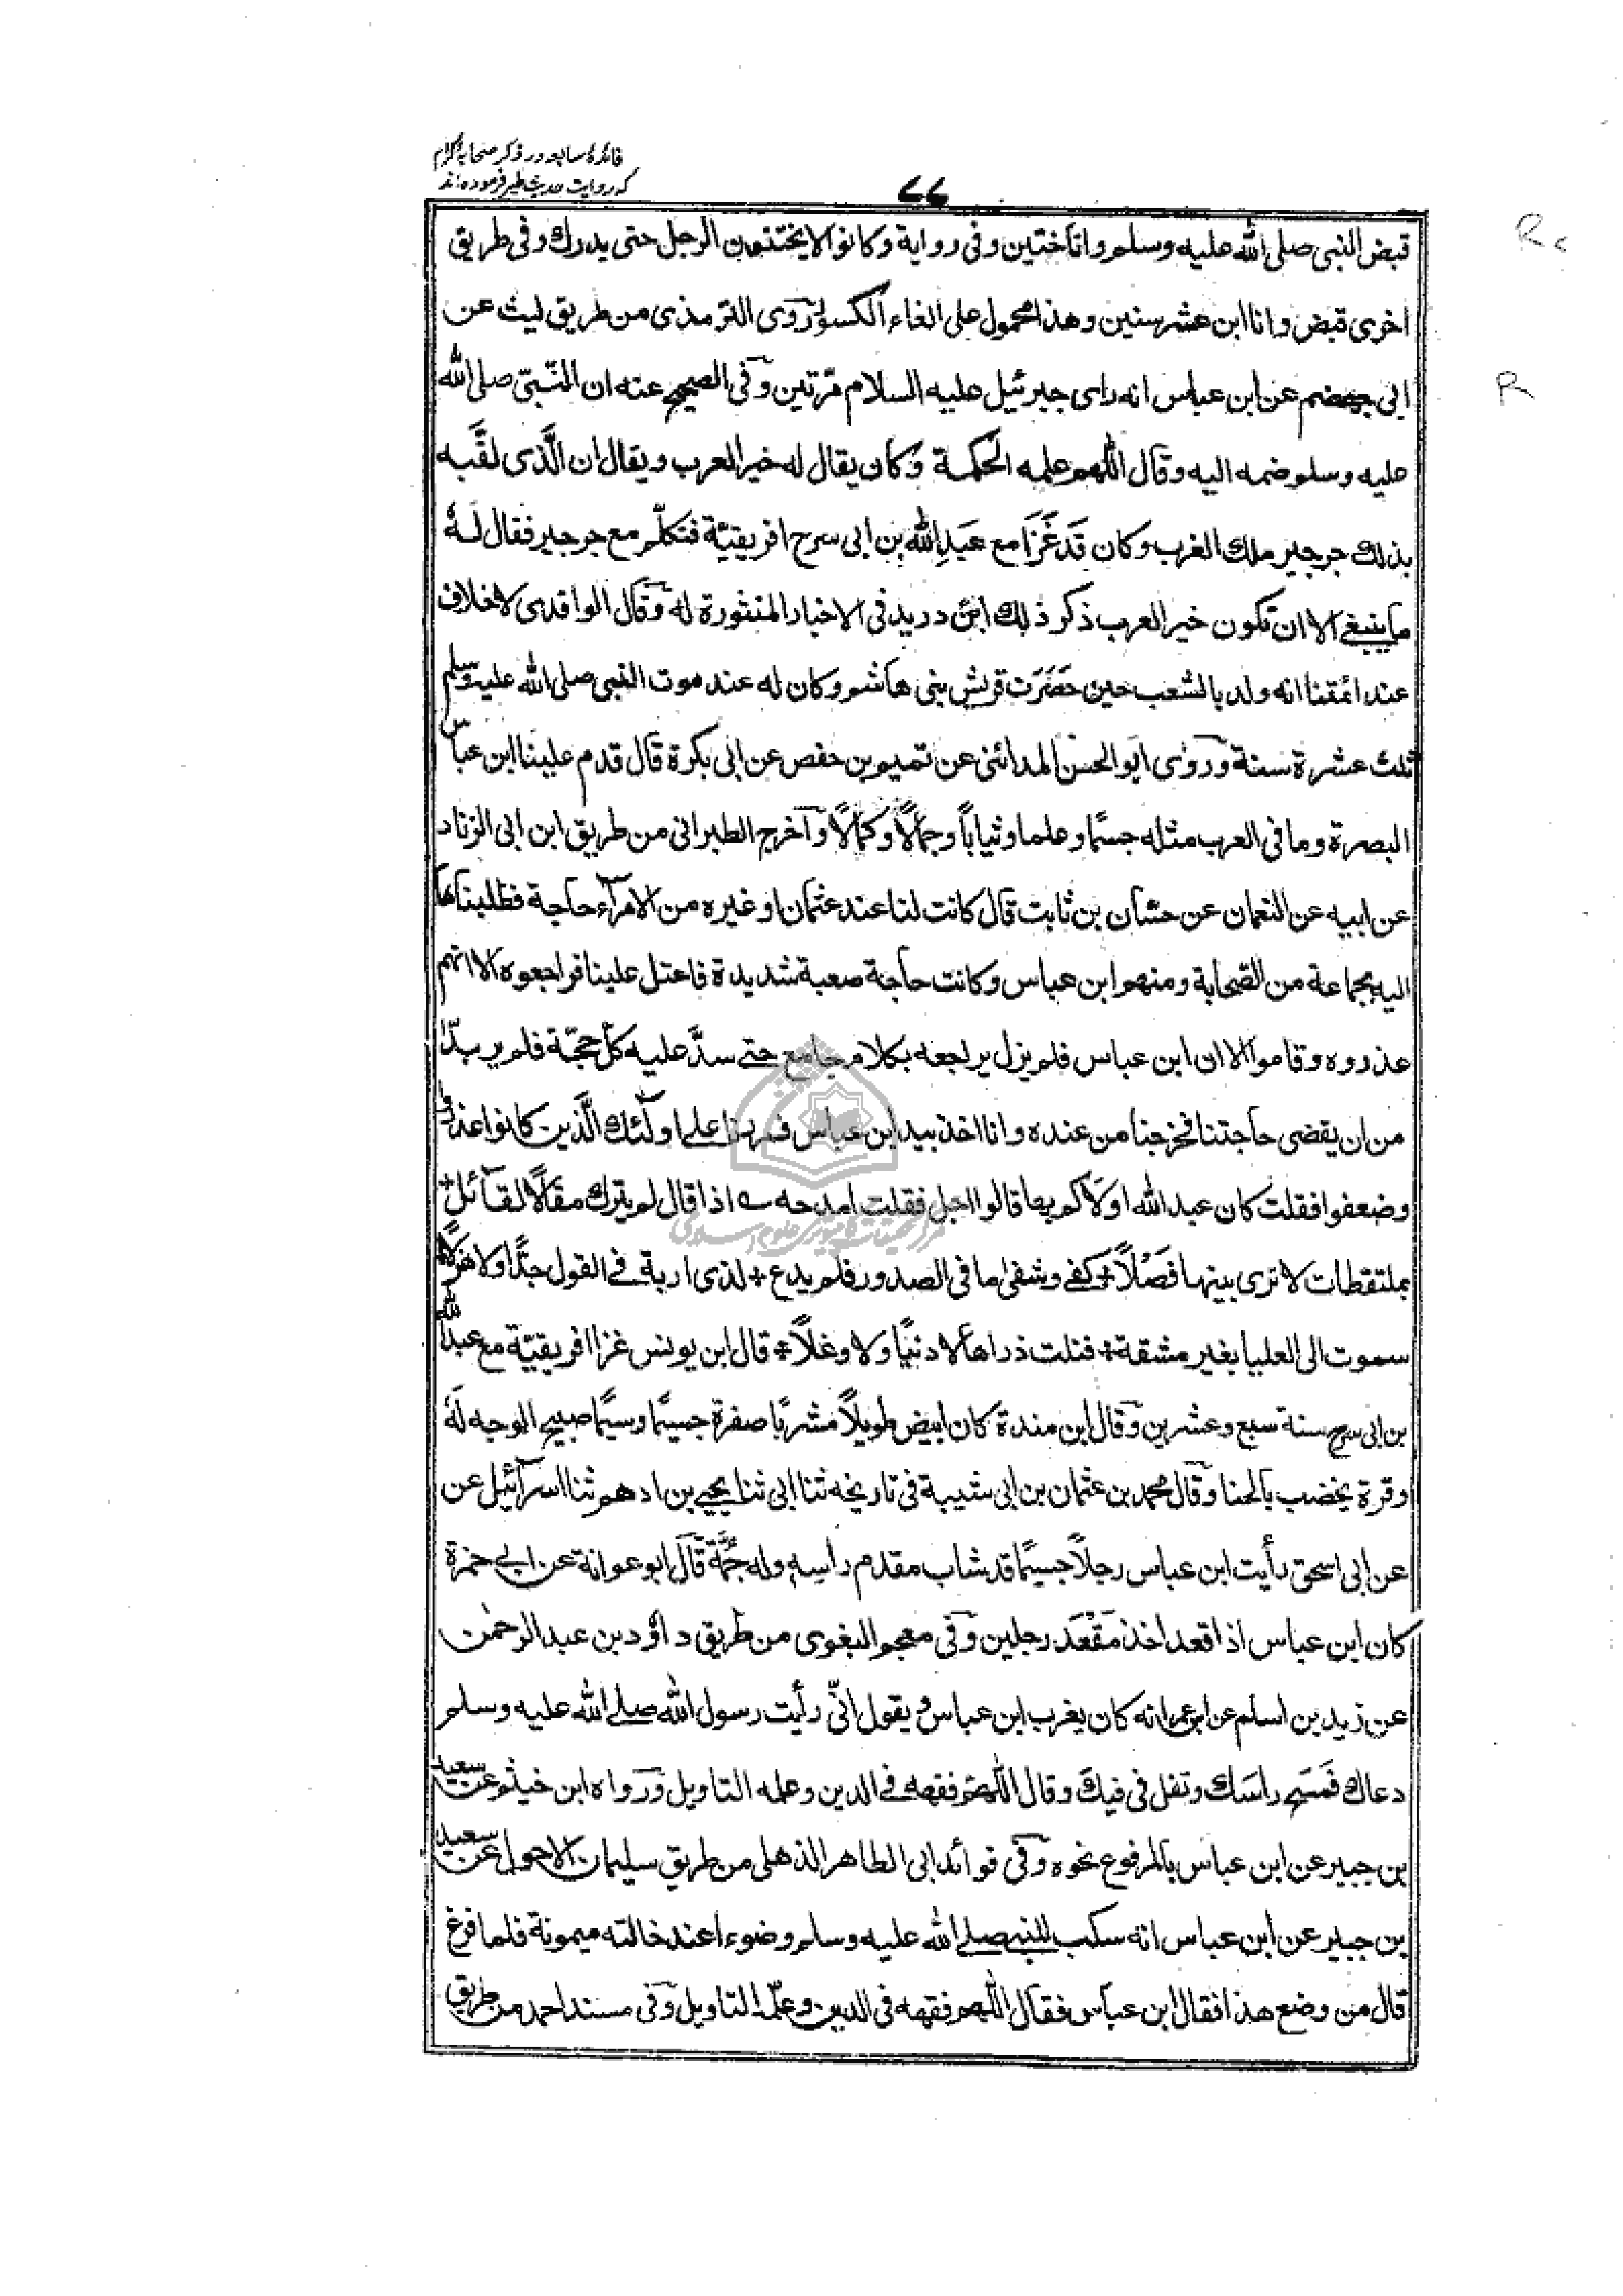 فائدهٔ سابعه در ذکر صحابهٔ کرام
که روایت حدیث طیر فرموده‌اند
۷۷
قبض النبی صلی الله علیه وسلم وانا ختین وفی روایة وکانوا لا یختنون الرجل حتی یدرك وفی طریق
اخری قبض وانا ابن عشر سنین وهذا محمول علی الغاء الکسور وروی الترمذی من طریق لیث عن
ابی جهضم عن ابن عباس انه رای جبرئیل علیه السلام مرّتین وفی الصحیح عنه ان النّبیّ صلی الله
علیه وسلم ضمه الیه وقال اللّهم علمه الحکمة وکان یقال له خیر العرب ویقال ان الّذی لقّبه
بذلك جرجیر ملك الغرب وکان قد غَزَا مع عبد الله بن ابی سرح افریقیّة فتکلّم مع جرجیر فقال له
ما ینبغی الا ان تکون خیر العرب ذکر ذلك ابن درید فی الاخبار المنثورة له وقال الواقدی لا خلاف
عند ائمّتنا انه ولد بالشعب حین حَصَرَت قریش بنی هاشم وکان له عند موت النبی صلی الله علیه وسلم
ثلث عشرة سنة وروی ابو الحسن المدائنی عن تمیم بن حفص عن ابی بکرة قال قدم علینا ابن عباس
البصرة وما فی العرب مثله جسمًا وعلما وثیاباً وجمالاً وکمالاً واخرج الطبرانی من طریق ابن ابی الزناد
عن ابیه عن النعمان عن حسّان بن ثابت قال کانت لنا عند عثمان او غیره من الامرآء حاجة فطلبناها
الیه بجماعة من الصّحابة ومنهم ابن عباس وکانت حاجة صعبة شدیدة فاعتل علینا فراجعوه الا انهم
عذروه وقاموا الا ان ابن عباس فلم یزل یراجعه بکلام جامع حتی سدَّ علیه کلّ حجّة فلم یر بدّا
من ان یقضی حاجتنا فخرجنا من عنده وانا اخذ بید ابن عباس فمررنا علی اولئك الّذین کانوا عذروه
وضعفوا فقلت کان عبد الله اولاکم بها قالوا اجل فقلت امدحه اذا قال لم یترك مقالاً لقآئل +
بملتقطات لا تری بینها فَصْلاً + کفی وشفی ما فی الصدور فلم یدع + لذی اربة فی القول جدًّا ولا هزلاً +
سموت الی العلیا بغیر مشقة + فنلت ذراها لا دنیًّا ولا وغلاً + قال ابن یونس غزا افریقیّة مع عبد الله
بن ابی سرح سنة سبع وعشرین وقال ابن مندة کان ابیض طویلاً مشربًا صفرة جسیمًا وسیمًا صبیح الوجه له
وفرة یخضب بالحنا وقال محمد بن عثمان بن ابی شیبة فی تاریخه ثنا ابی ثنا یحیی بن ادهم ثنا اسرآئیل عن
عن ابی اسحق رأیت ابن عباس رجلاً جسیمًا قد شاب مقدم راسه وله جُمَّة قال ابو عوانة عن ابی حمزة
کان ابن عباس اذا قعد اخذ مَقْعَد رجلین وفی معجم البغوی من طریق داؤد بن عبد الرحمٰن
عن زید بن اسلم عن ابن عمر انه کان یقرب ابن عباس ویقول انّی رأیت رسول الله صلی الله علیه وسلم
دعاك فمسح راسك وتفل فی فیك وقال اللّهم فقهه فی الدین وعلمه التاویل ورواه ابن خیثم عن سعید
بن جبیر عن ابن عباس بالمرفوع نحوه وفی فوائد ابی الطاهر الذهلی من طریق سلیمان الاحول عن سعید
بن جبیر عن ابن عباس انه سکب للنبی صلی الله علیه وسلم وضوءا عند خالته میمونة فلما فرغ
قال من وضع هذا فقال ابن عباس فقال اللّهم فقهه فی الدین وعلّمه التاویل وفی مسند احمد من طریق
R
R
مرکز تحقیقات کامپیوتری علوم اسلامی